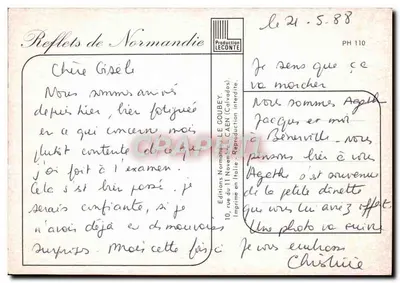 Reflets de Normandie
Chère Gisèle
Nous sommes arrivés
depuis hier, bien fatiguée
en ce qui concerne, mais
plutôt contente de ce que
j'ai fait à l'examen.
Cela s'est bien passé. je
serais confiante, si je
n'avais déjà eu des mauvaises
surprises. Mais cette fois ci
Production
LECONTE
Editions Normandes LE GOUBEY
10, rue du 11 Novembre, CAEN (Calvados).
Imprimé en Italie - Reproduction interdite.
le 21-5.88
PH 110
Je sens que ça
va marcher
Nous sommes Agath
Jacques et moi
à Bénerville. Nous
pensons bien à vous
Agathe s'est souvenue
de la petite dinette
que vous lui avez offert
Une photo va suivre
Je vous embrasse
Christine